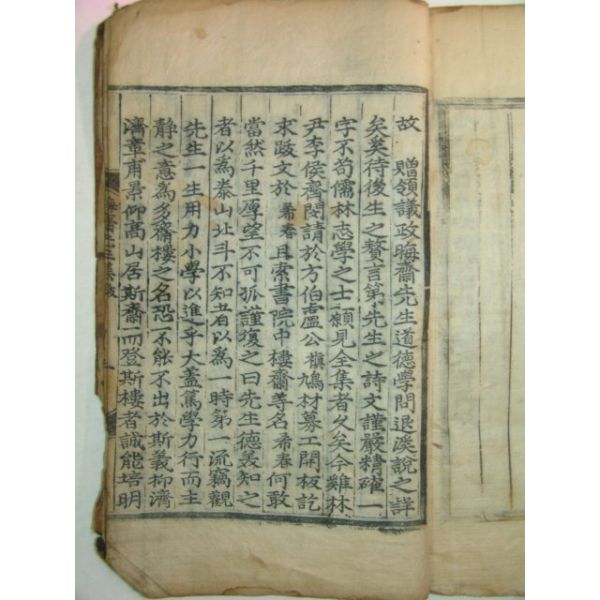 故 贈領議政晦齋先生道德學問退溪說之詳
矣奚待後生之贅言第先生之詩文謹嚴精確一
字不苟儒林志學之士願見全集者久矣今雞林
尹李侯齊閔請於方伯盧公禛鳩材募工開板訖
求跋文於希春且索書院中樓齋等名希春何敢
當然千里厚望不可孤謹復之曰先生德義知之
者以爲泰山北斗不知者以爲一時第一流竊觀
先生一生用力小學以進乎大盖篤學力行而主
靜之意爲多齋樓之名恐不能不出於斯義抑濟
濟章甫景仰高山居斯齋而登斯樓者誠能培明